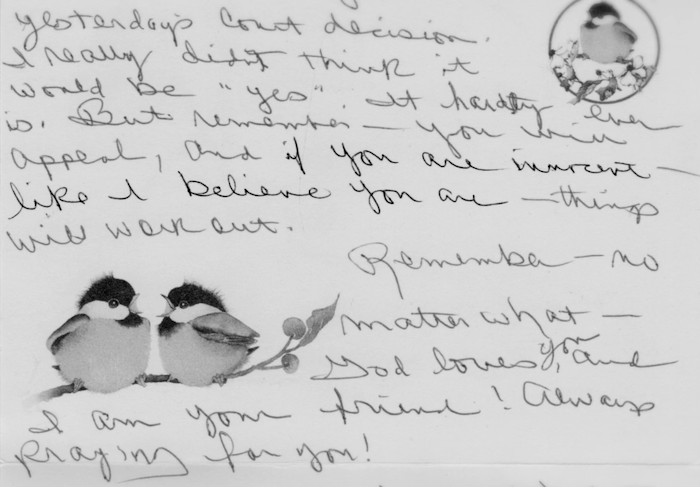 yesterday's court decision.
I really didn't think it
would be "yes". It hardly ever
is. But remember — you will
appeal, and if you are innocent —
like I believe you are — things
will work out.
Remember — no
matter what —
God loves you, and
I am your friend! Always
praying for you!